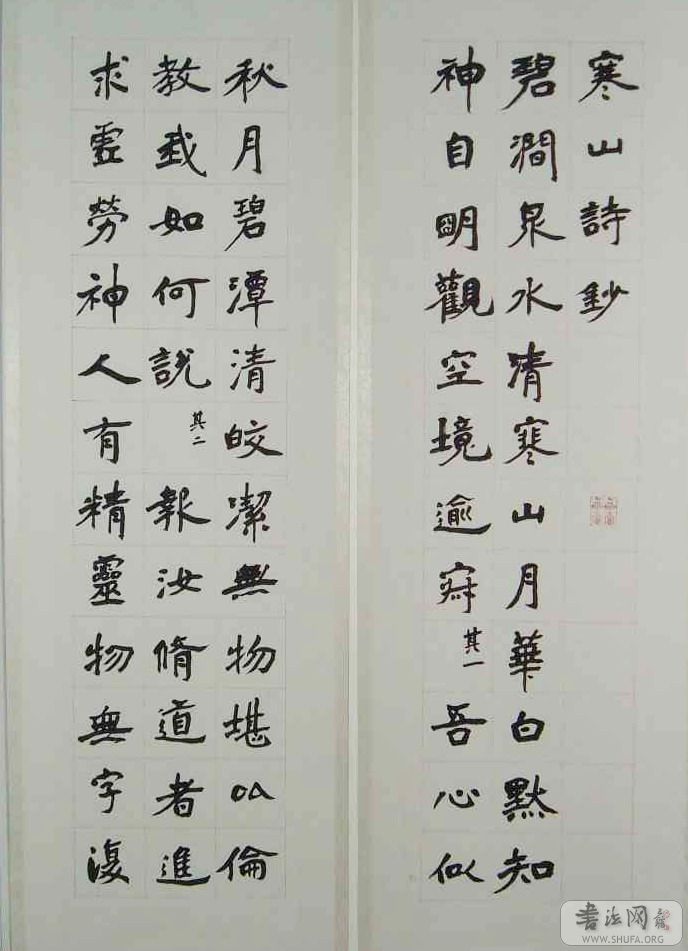 寒山詩鈔
碧澗泉水清寒山月華白默知
神自明觀空境逾寂其一吾心似
秋月碧潭清皎潔無物堪以倫
教我如何說其二報汝脩道者進
求虛勞神人有精靈物無字復
书法网
WWW.SHUFA.ORG